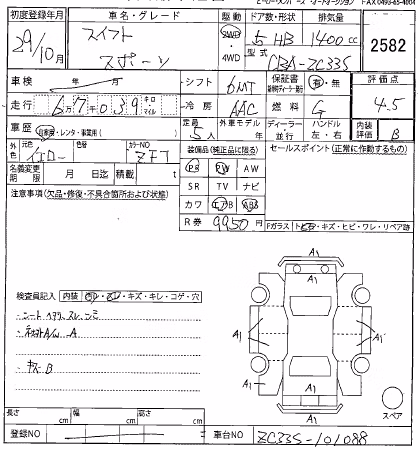 FAX 0493-65-4004
初度登録年月 車名・グレード 駆動 ドア数・形状 排気量
29/10月 スイフト スポーツ 2WD 4WD 5 HB 1400cc 2582
型式 CBA-ZC33S
車検 年 月 シフト 6MT 保証書 有・無 評価点
走行 67,039 キロ マイル 冷房 AAC 燃料 G 4.5
車歴 自家用・レンタ・事業用 定員 5人 外車モデル 年 ディーラー 並行 ハンドル 左・右 内装評価 B
外色 元色 イエロー 色替 カラーNO ZFT 装備品(純正品に限る) セールスポイント(正常に作動するもの)
名義変更期限 月 日迄 積載 PS PW AW
注意事項(欠品・修復・不具合箇所および状態) SR TV ナビ
カワ エアB ABS
R券 9950円
Fガラス トビ石・キズ・ヒビ・ワレ・リペア跡
A1
検査員記入 内装 キズ・キレ・コゲ・穴
シートヘタリ、スレ、シミ
A/W A
キズ B
A1 A1 A1 A1
A1
スペア
長さ cm 幅 cm 高さ cm
登録NO 車台NO ZC33S-101088